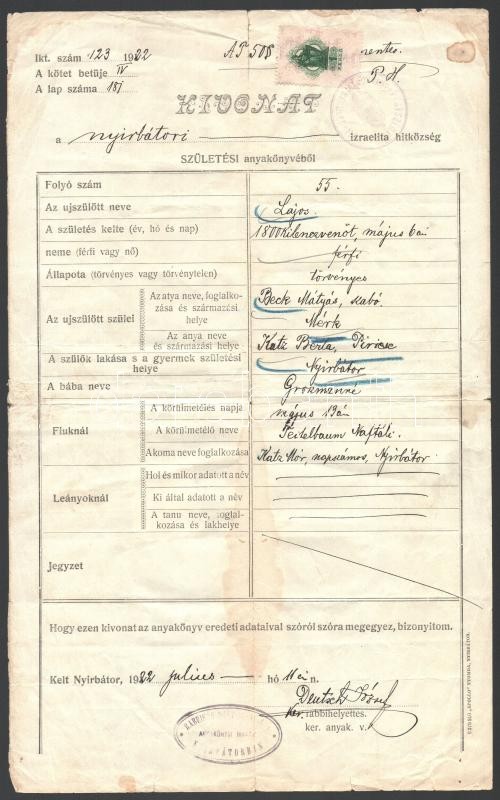 Ikt. szám 123 1922
A kötet betüje IV
A lap száma 187
P. H.
KIVONAT
a nyirbátori izraelita hitközség
SZÜLETÉSI anyakönyvéből
Folyó szám 55.
Az ujszülött neve Lajos.
A születés kelte (év, hó és nap) 1800kilencvenöt, május 6án
neme (férfi vagy nő) férfi
Állapota (törvényes vagy törvénytelen) törvényes
Az ujszülött szülei
Az atya neve, foglalkozása és származási helye Beck Mátyás, szabó. Mérk
Az anya neve és származási helye Katz Berta, Piricse
A szülők lakása s a gyermek születési helye Nyirbátor
A bába neve
Fiuknál
A körülmetélés napja május 13án
A körülmetélő neve Teitelbaum Naftáli.
A koma neve foglalkozása Katz Mór, napszámos, Nyirbátor
Leányoknál
Hol és mikor adatott a név
Ki által adatott a név
A tanu neve, foglalkozása és lakhelye
Jegyzet
Hogy ezen kivonat az anyakönyv eredeti adataival szóról szóra megegyez, bizonyitom.
Kelt Nyirbátor, 1922 julius hó 11én.
Deutsch József
ker. rabbihelyettes.
ker. anyak. v.